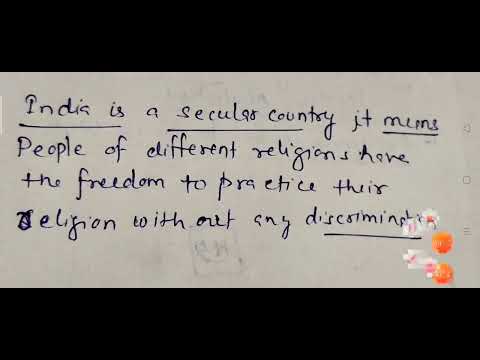 India is a secular country it mems
People of different religions have
the freedom to practice their
religion with out any discrimination